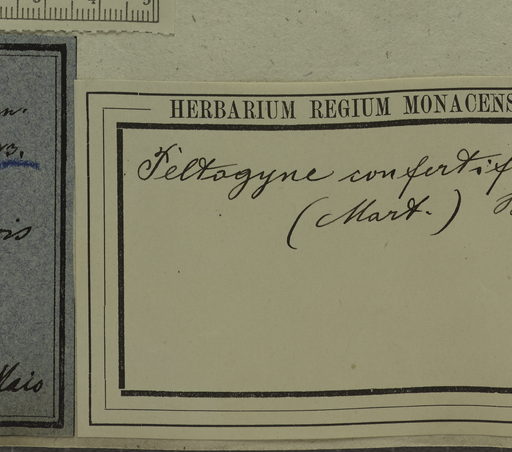 3 4 5
n.
3.
ois
Maio
HERBARIUM REGIUM MONACENS
Peltogyne confertif
(Mart.)